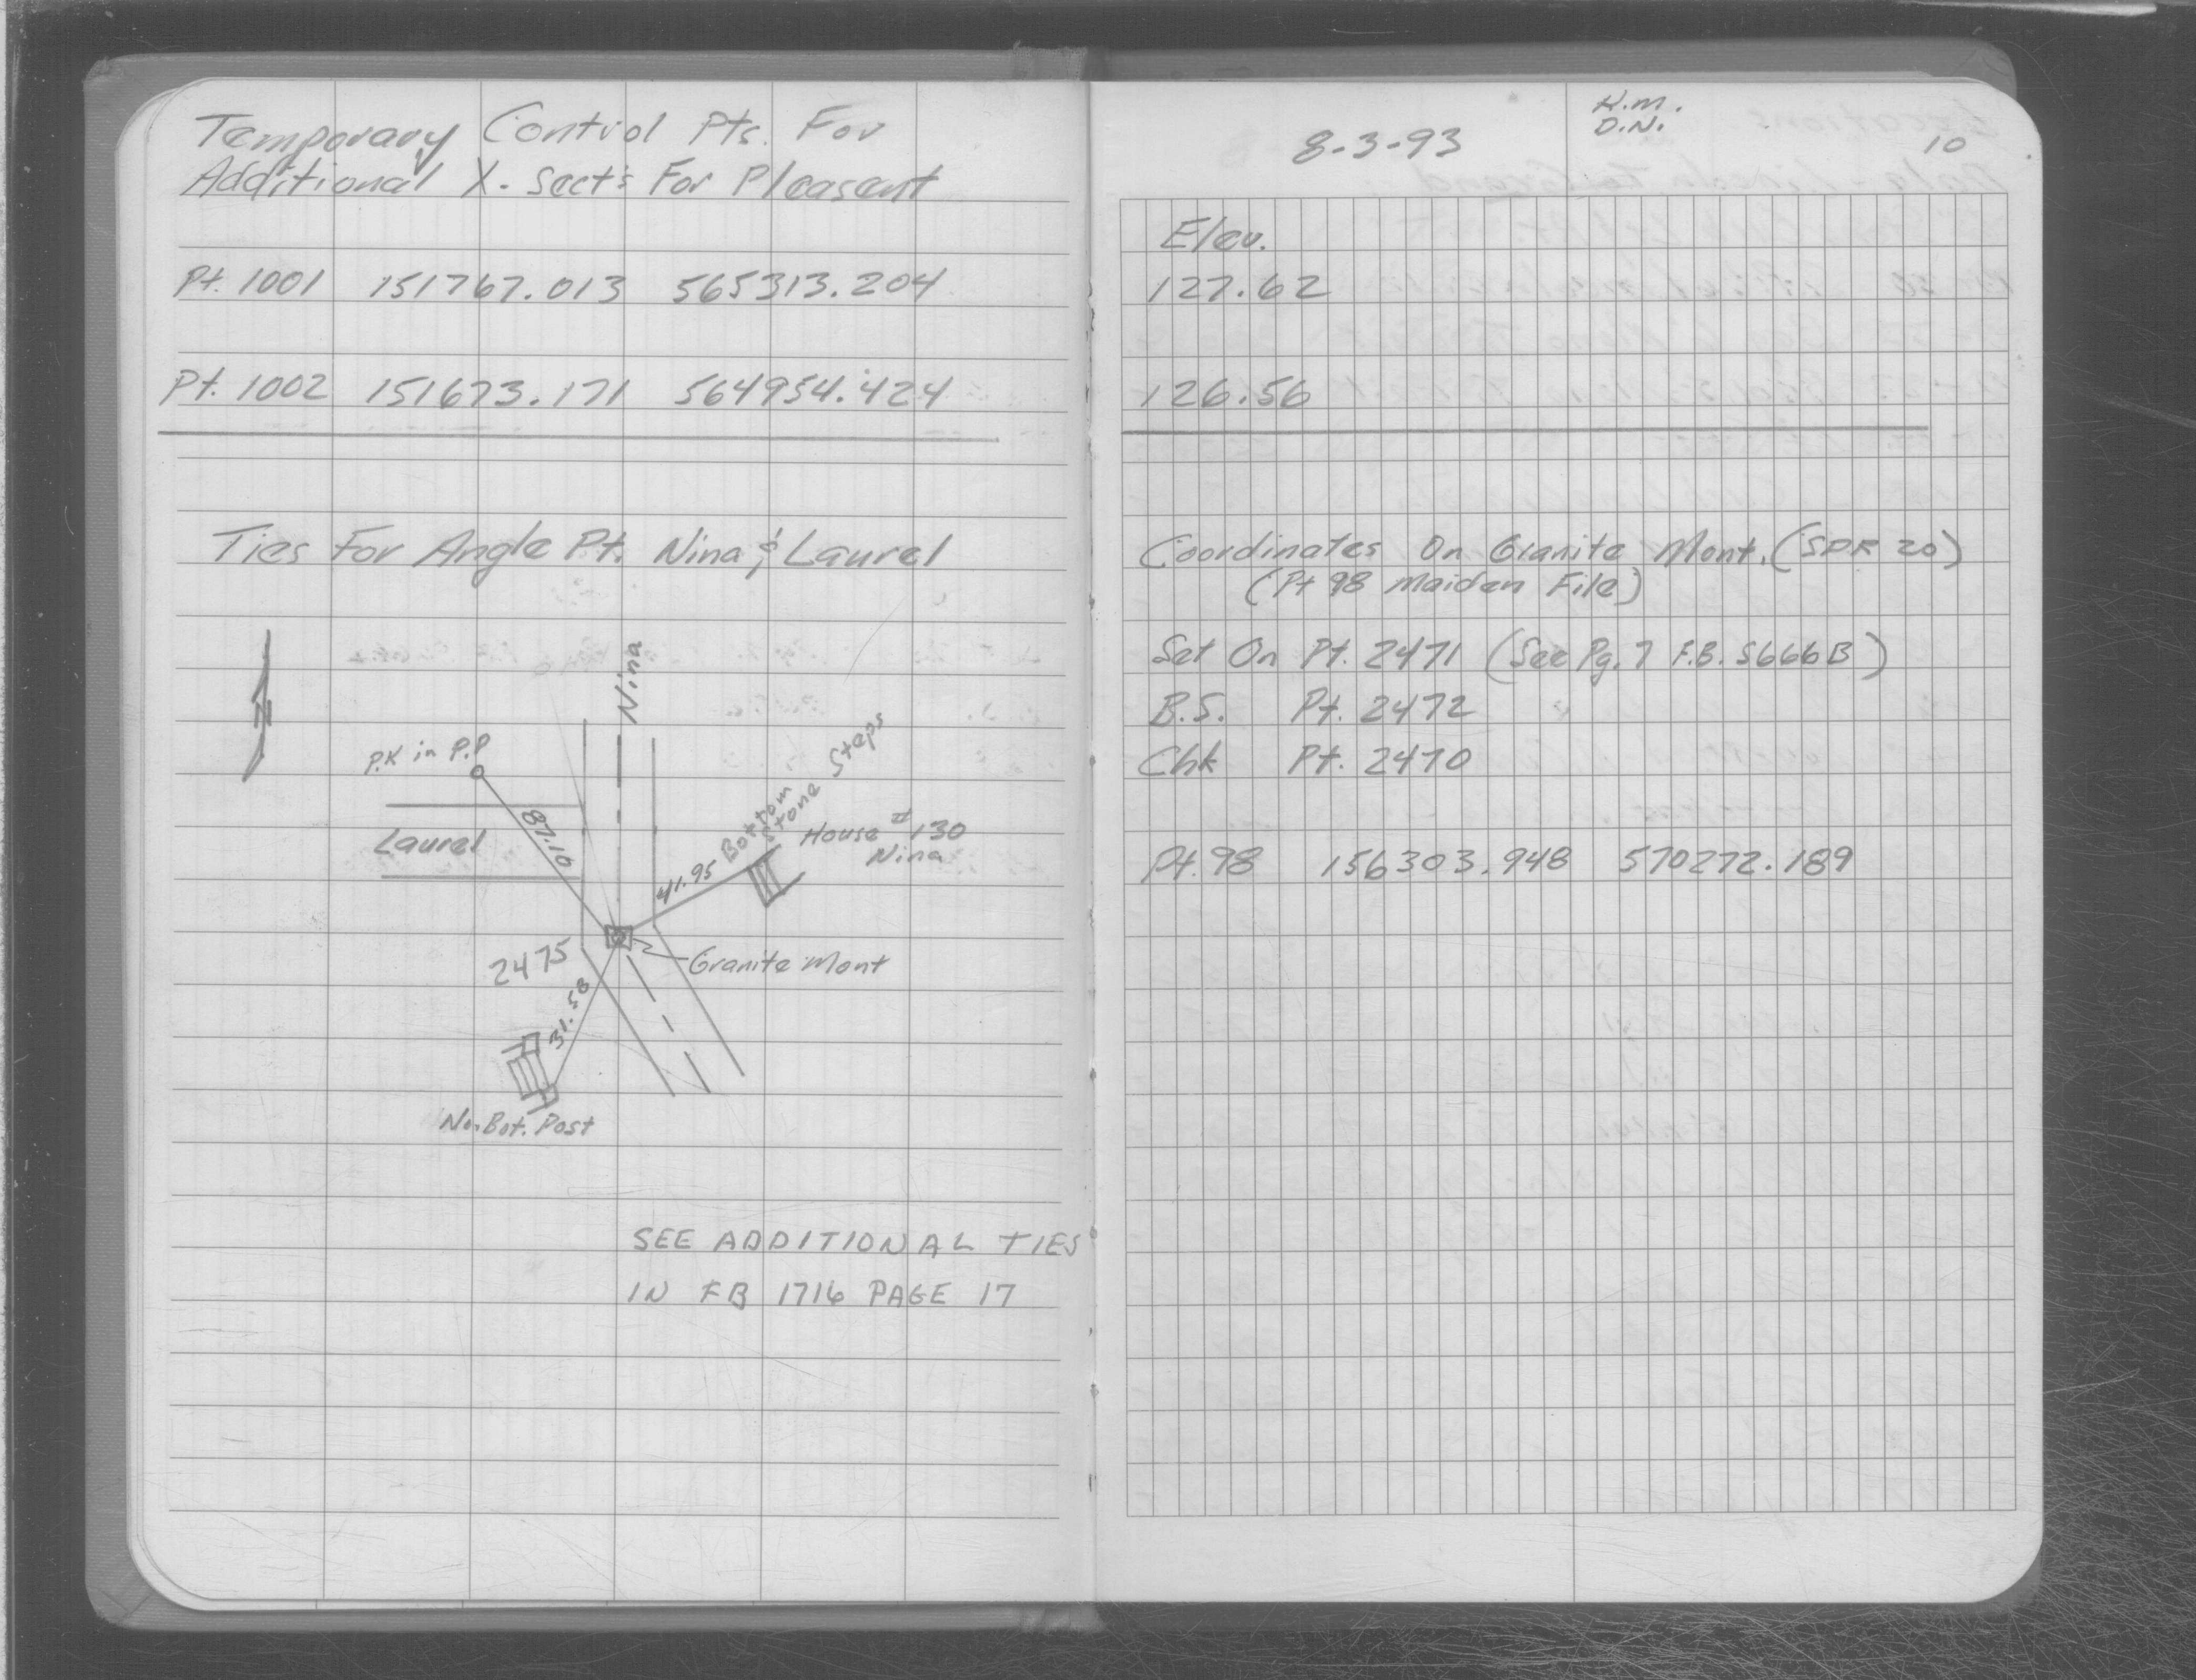 Temporary Control Pts. For
Additional X-Sects For Pleasant
Pt. 1001 151767.013 565313.204
Pt. 1002 151673.171 564954.424
Ties For Angle Pt. Nina & Laurel
Nina
P.K in P.P
87.10
Laurel
Bottom
Stone Steps
House #130
Nina
41.95
Granite Mont
2475
31.58
No. Bot. Post
SEE ADDITIONAL TIES
IN FB 1716 PAGE 17
8-3-93
K.M.
D.N.
10
Elev.
127.62
126.56
Coordinates On Granite Mont. (SDR 20)
(Pt 98 Maiden File)
Set On Pt. 2471 (See Pg. 7 F.B. 5666B)
B.S. Pt. 2472
Chk Pt. 2470
Pt. 98 156303.948 570272.189